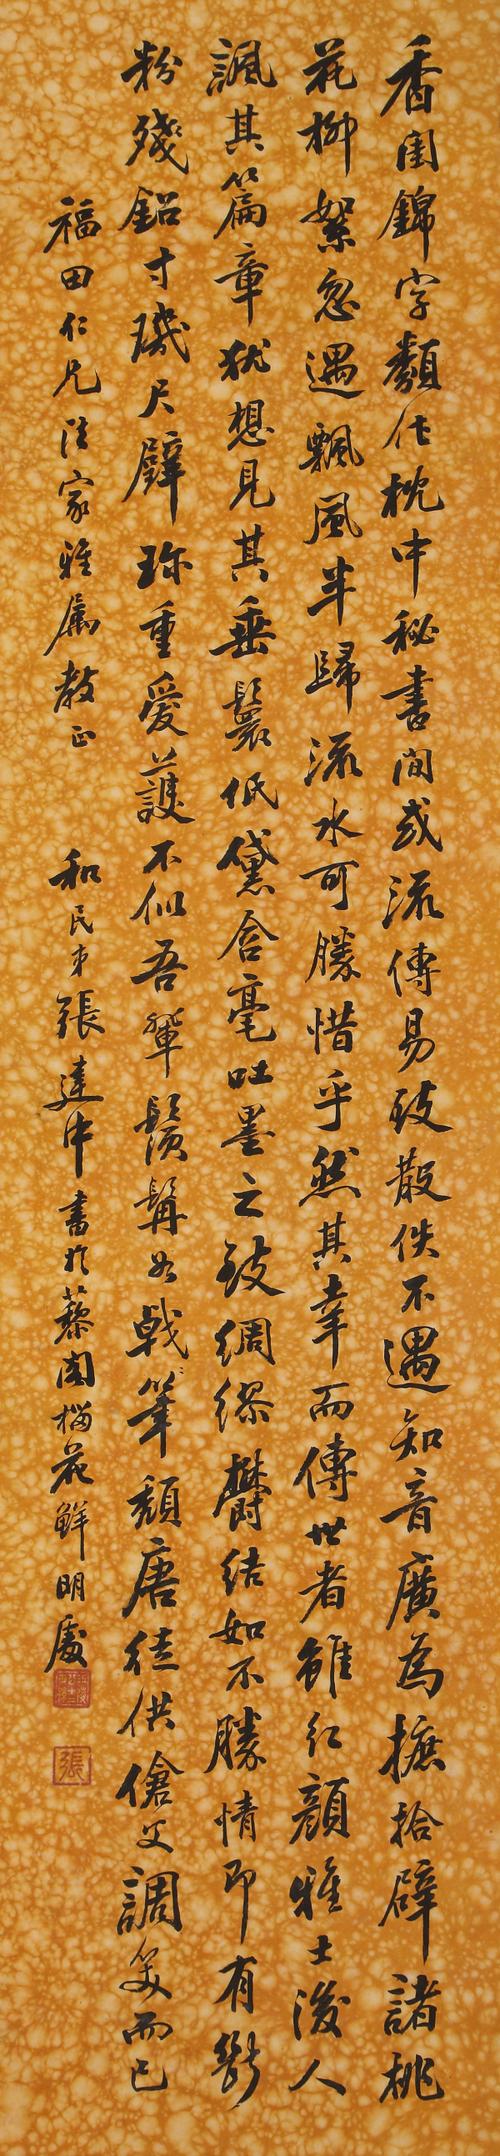 香閨錦字類作枕中秘書閒或流傳易致散佚不遇知音廣為摭拾辟諸桃
花柳絮忽遇飄風半歸流水可勝惜乎然其幸而傳世者雖紅顏雅士後人
諷其篇章猶想見其垂鬟低黛含毫吐墨之致綢繆鬱結如不勝情即有斷
粉殘鉛寸璣尺璧珍重愛護不似吾輩鬚髯如戟筆頹唐徒供傖父調笑而已
福田仁兄法家雅屬教正
和民弟張達中書於藜閣榴花鮮明處
張